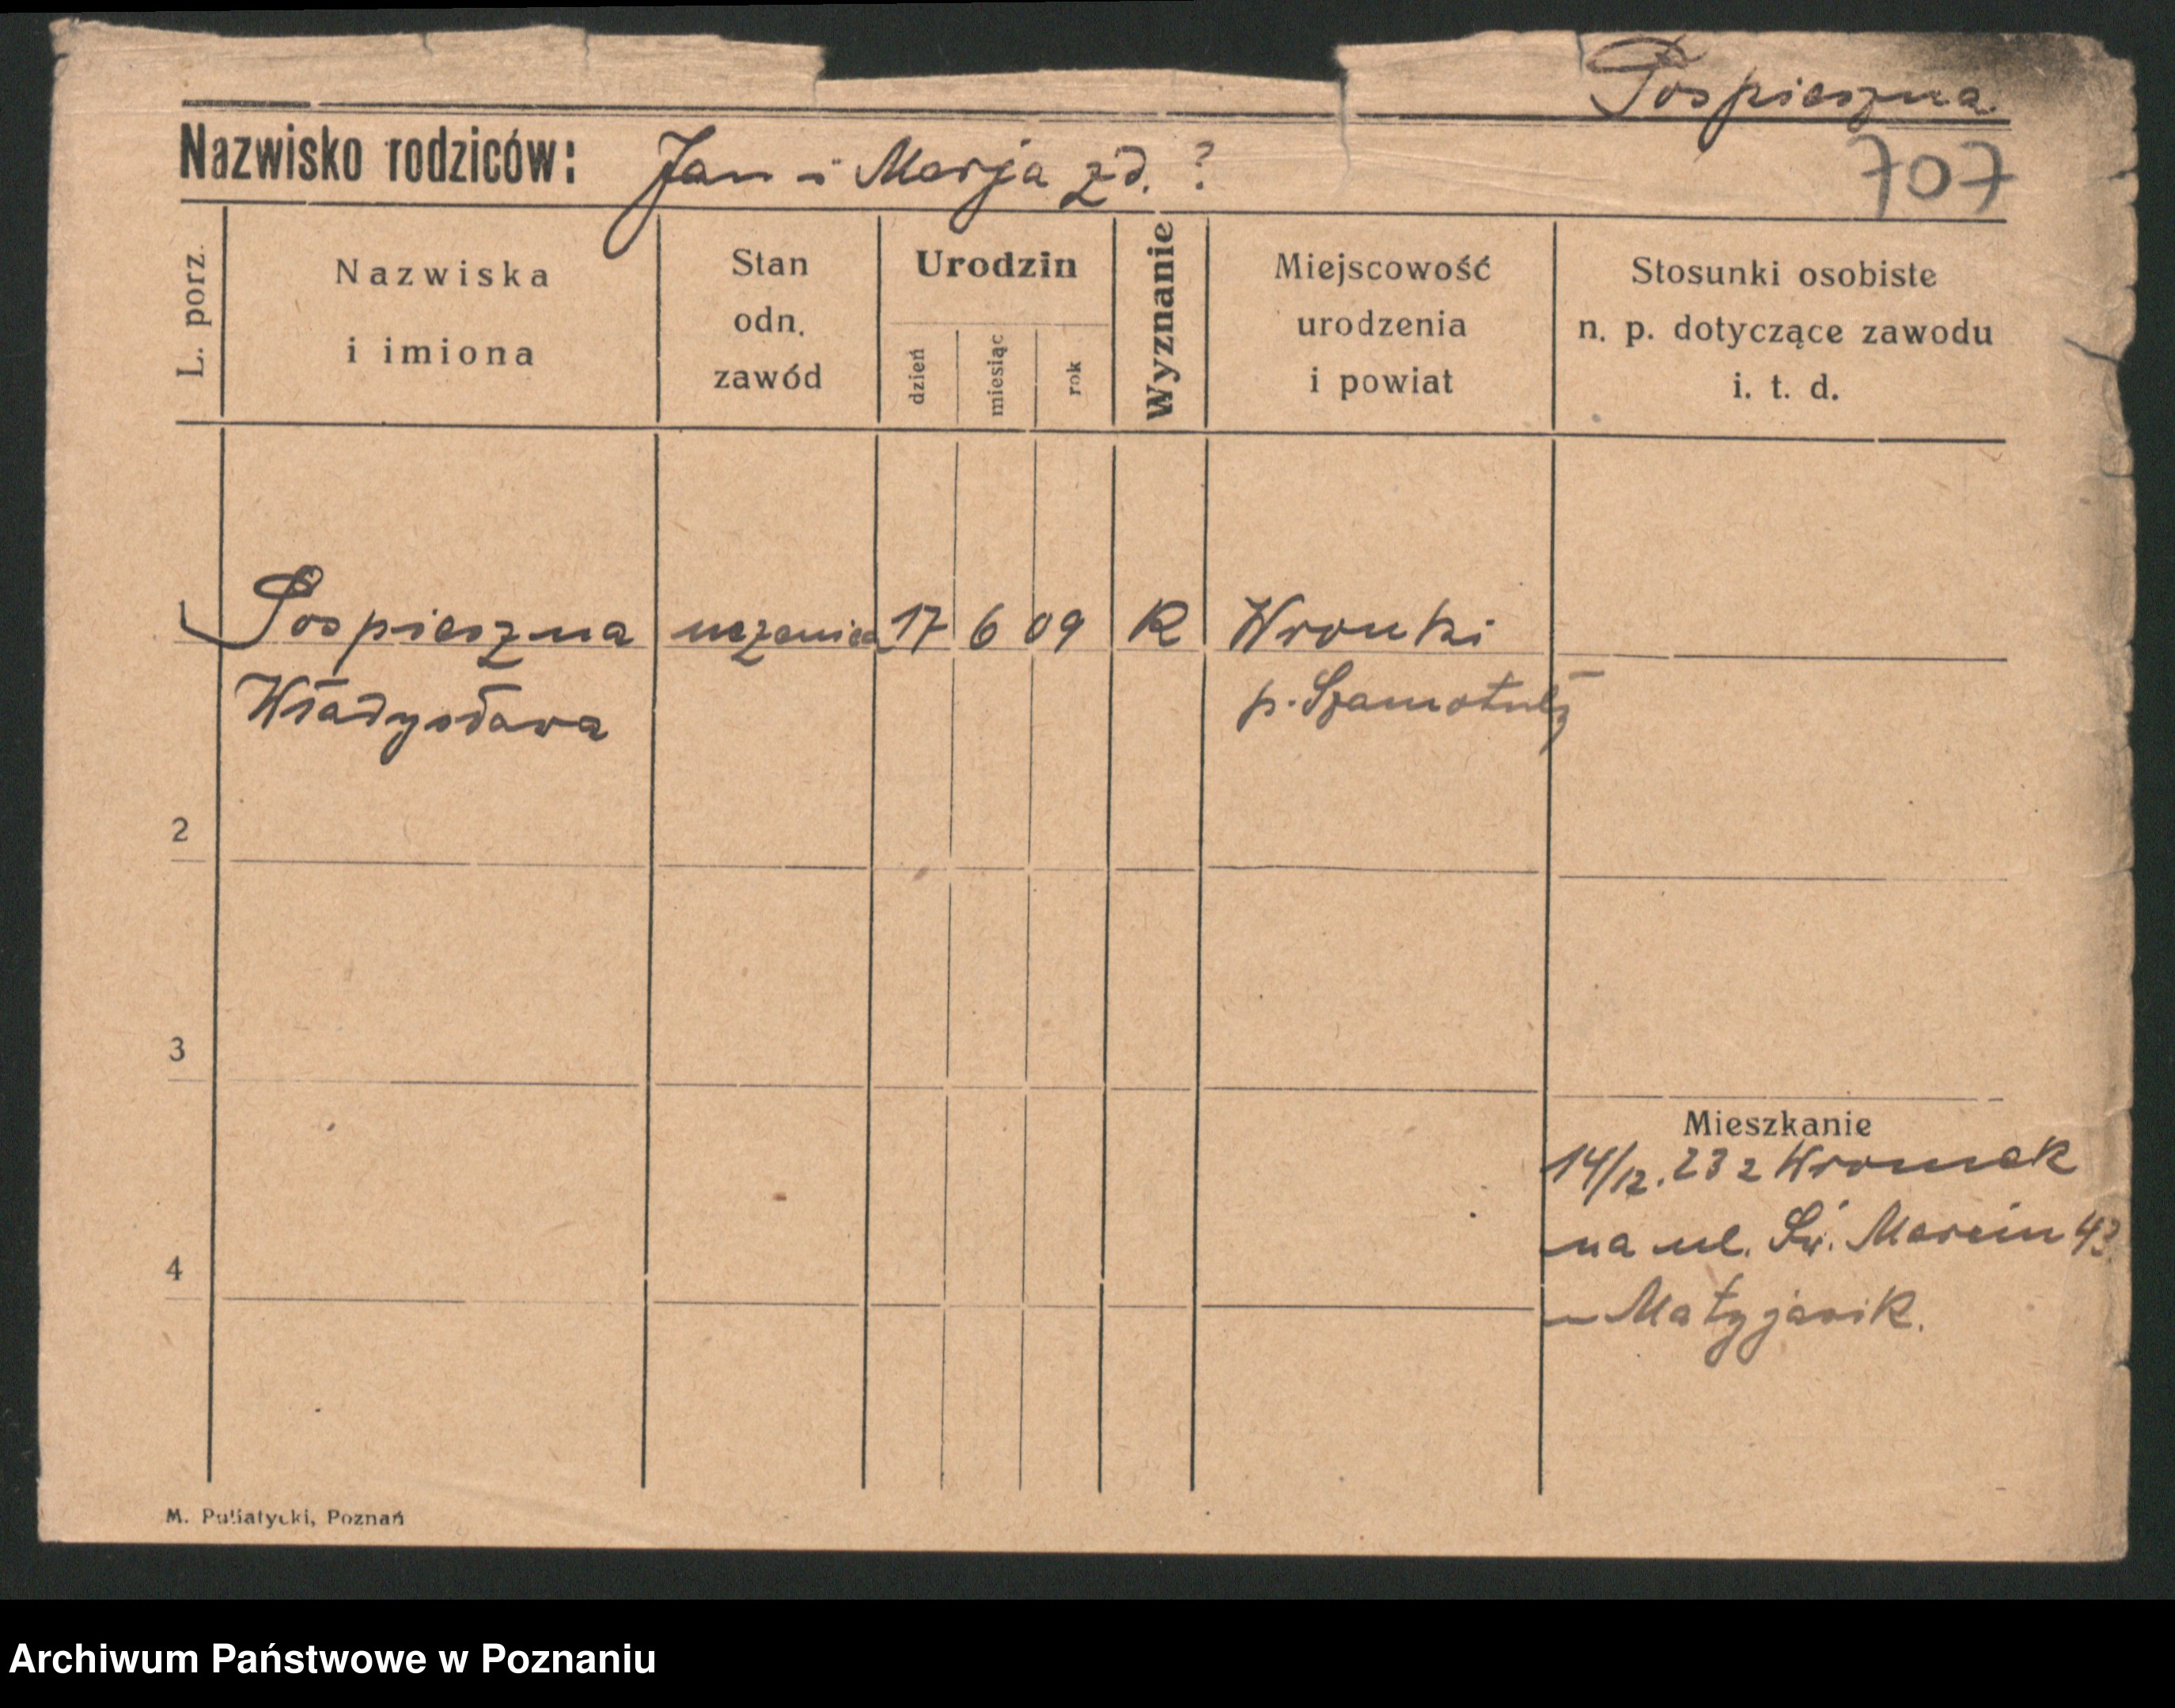 Pospieszna
Nazwisko rodziców: Jan i Marja zd. ?
707
L. porz.
Nazwiska
i imiona
Stan
odn.
zawód
Urodzin
dzień
miesiąc
rok
Wyznanie
Miejscowość
urodzenia
i powiat
Stosunki osobiste
n. p. dotyczące zawodu
i. t. d.
Pospieszna uczenica 17 6 09 R Wronki
Władysława p. Szamotuły
2
3
Mieszkanie
14/12. 23 z Wronek
na ul. Św. Marcin 43
4
Matyjasik.
M. Putiatycki, Poznań
Archiwum Państwowe w Poznaniu